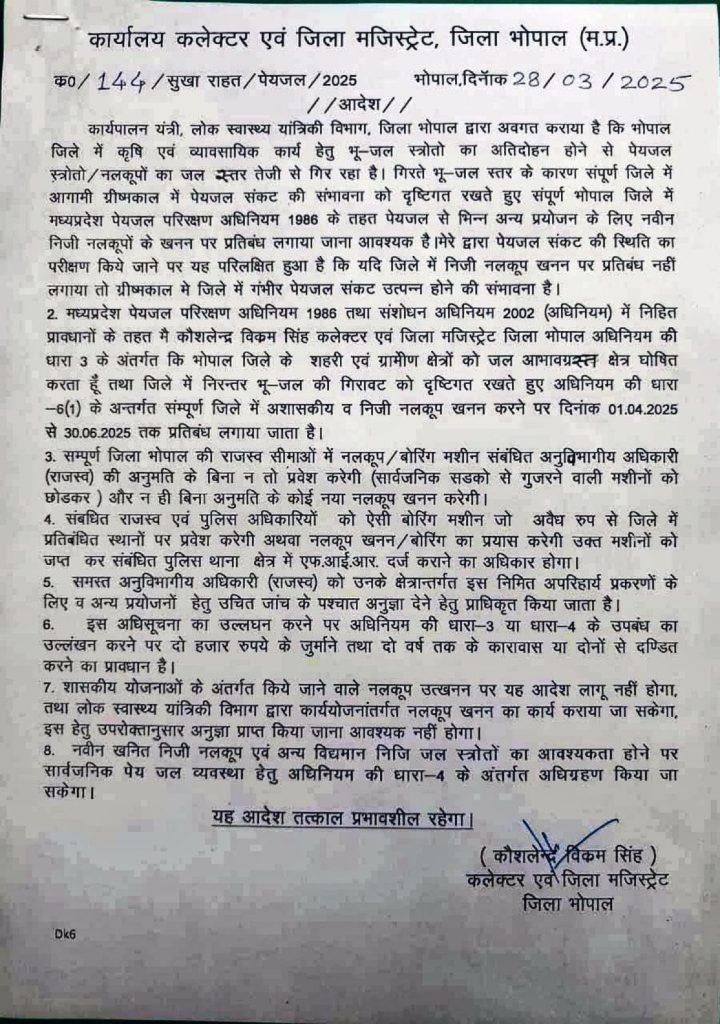 कार्यालय कलेक्टर एवं जिला मजिस्ट्रेट, जिला भोपाल (म.प्र.)
क0/144/सुखा राहत/पेयजल/2025 भोपाल,दिनॅाक 28/03/2025
//आदेश//
कार्यपालन यंत्री, लोक स्वास्थ्य यांत्रिकी विभाग, जिला भोपाल द्वारा अवगत कराया है कि भोपाल
जिले में कृषि एवं व्यावसायिक कार्य हेतु भू–जल स्त्रोतो का अतिदोहन होने से पेयजल
स्त्रोतो/नलकूपों का जल स्तर तेजी से गिर रहा है। गिरते भू–जल स्तर के कारण संपूर्ण जिले में
आगामी ग्रीष्मकाल में पेयजल संकट की संभावना को दृष्टिगत रखते हुए संपूर्ण भोपाल जिले में
मध्यप्रदेश पेयजल परिरक्षण अधिनियम 1986 के तहत पेयजल से भिन्न अन्य प्रयोजन के लिए नवीन
निजी नलकूपों के खनन पर प्रतिबंध लगाया जाना आवश्यक है।मेरे द्वारा पेयजल संकट की स्थिति का
परीक्षण किये जाने पर यह परिलक्षित हुआ है कि यदि जिले में निजी नलकूप खनन पर प्रतिबंध नहीं
लगाया तो ग्रीष्मकाल मे जिले में गंभीर पेयजल संकट उत्पन्न होने की संभावना है।
2. मध्यप्रदेश पेयजल परिरक्षण अधिनियम 1986 तथा संशोधन अधिनियम 2002 (अधिनियम) में निहित
प्रावधानों के तहत मै कौशलेन्द्र विक्रम सिंह कलेक्टर एवं जिला मजिस्ट्रेट जिला भोपाल अधिनियम की
धारा 3 के अंतर्गत कि भोपाल जिले के शहरी एवं ग्रामीण क्षेत्रों को जल आभावग्रस्त क्षेत्र घोषित
करता हूँ तथा जिले में निरन्तर भू–जल की गिरावट को दृष्टिगत रखते हुए अधिनियम की धारा
–6(1) के अन्तर्गत सम्पूर्ण जिले में अशासकीय व निजी नलकूप खनन करने पर दिनांक 01.04.2025
से 30.06.2025 तक प्रतिबंध लगाया जाता है।
3. सम्पूर्ण जिला भोपाल की राजस्व सीमाओं में नलकूप/बोरिंग मशीन संबंधित अनुविभागीय अधिकारी
(राजस्व) की अनुमति के बिना न तो प्रवेश करेगी (सार्वजनिक सडको से गुजरने वाली मशीनों को
छोडकर ) और न ही बिना अनुमति के कोई नया नलकूप खनन करेगी।
4. संबधित राजस्व एवं पुलिस अधिकारियों को ऐसी बोरिंग मशीन जो अवैध रुप से जिले में
प्रतिबंधित स्थानों पर प्रवेश करेगी अथवा नलकूप खनन/बोरिंग का प्रयास करेगी उक्त मशीनों को
जप्त कर संबंधित पुलिस थाना क्षेत्र में एफ.आई.आर. दर्ज कराने का अधिकार होगा।
5. समस्त अनुविभागीय अधिकारी (राजस्व) को उनके क्षेत्रान्तर्गत इस निमित अपरिहार्य प्रकरणों के
लिए व अन्य प्रयोजनों हेतु उचित जांच के पश्चात अनुज्ञा देने हेतु प्राधिकृत किया जाता है।
6. इस अधिसूचना का उल्लघन करने पर अधिनियम की धारा–3 या धारा–4 के उपबंध का
उल्लंखन करने पर दो हजार रुपये के जुर्माने तथा दो वर्ष तक के कारावास या दोनों से दण्डित
करने का प्रावधान है।
7. शासकीय योजनाओं के अंतर्गत किये जाने वाले नलकूप उत्खनन पर यह आदेश लागू नहीं होगा,
तथा लोक स्वास्थ्य यांत्रिकी विभाग द्वारा कार्ययोजनांतर्गत नलकूप खनन का कार्य कराया जा सकेगा,
इस हेतु उपरोक्तानुसार अनुज्ञा प्राप्त किया जाना आवश्यक नहीं होगा।
8. नवीन खनित निजी नलकूप एवं अन्य विद्यमान निजि जल स्त्रोतों का आवश्यकता होने पर
सार्वजनिक पेय जल व्यवस्था हेतु अधिनियम की धारा–4 के अंतर्गत अधिग्रहण किया जा
सकेगा।
यह आदेश तत्काल प्रभावशील रहेगा।
( कौशलेन्द्र विक्रम सिंह )
कलेक्टर एवं जिला मजिस्ट्रेट
जिला भोपाल
Dk6